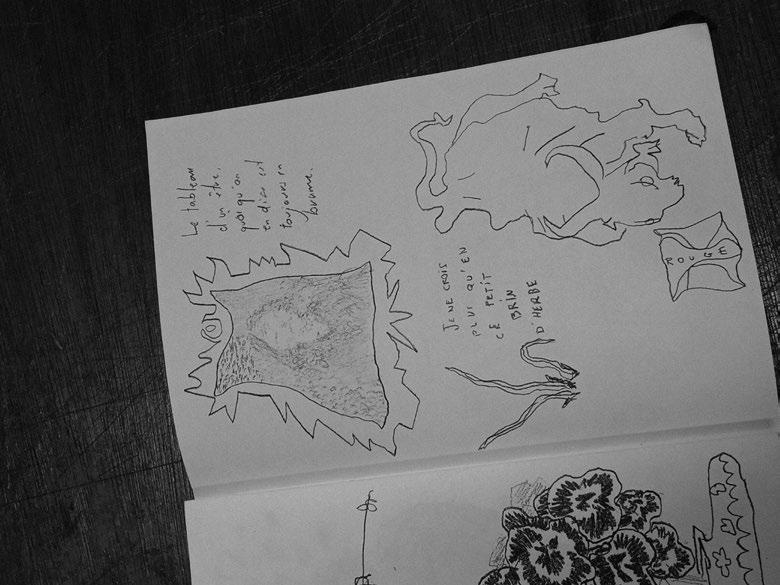 Le tableau
d'un être,
quoi qu'on
en dise est
toujours en
brume.
JE NE CROIS
PLUS QU'EN
CE PETIT
BRIN
D'HERBE
ROUGE